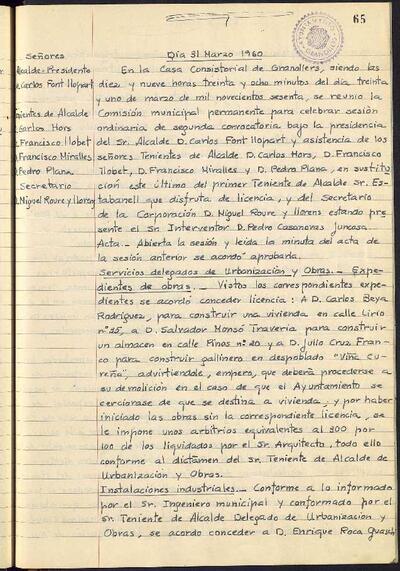 65
Señores
Alcalde-Presidente
Carlos Font Llopart
Tenientes de Alcalde
Carlos Hors
Francisco Llobet
Francisco Miralles
Pedro Plana
Secretario
D. Miguel Roure y Llorens
Día 31 Marzo 1960
En la Casa Consistorial de Granollers, siendo las
diez y nueve horas treinta y ocho minutos del día treinta
y uno de marzo de mil novecientos sesenta, se reunio la
Comisión municipal permanente para celebrar sesión
ordinaria de segunda convocatoria bajo la presidencia
del Sr. Alcalde D. Carlos Font Llopart y asistencia de los
señores Tenientes de Alcalde D. Carlos Hors, D. Francisco
Llobet, D. Francisco Miralles y D. Pedro Plana, en sustitu
ción este último del primer Teniente de Alcalde Sr. Es-
tabanell que disfruta de licencia, y del Secretario
de la Corporación D. Miguel Roure y Llorens estando pre-
sente el Sr. Interventor D. Pedro Casanovas Juncosa.
Acta.- Abierta la sesión y leida la minuta del acta de
la sesión anterior se acordó aprobarla.
Servicios delegados de Urbanización y Obras.- Expe-
dientes de obras.- Vistos los correspondientes expe-
dientes se acordó conceder licencia: A D. Carlos Beya
Rodríguez, para construir una vivienda en calle Lirio
nº 15, a D. Salvador Monsó Traveria para construir
un almacen en calle Pinos nº 20 y a D. Julio Cruz Fran-
co para construir gallinero en despoblado "Viña Cu-
reña", advirtiendole, empero, que deberá procederse a
su demolición en el caso de que el Ayuntamiento se
cerciorase de que se destina a vivienda, y por haber
iniciado las obras sin la correspondiente licencia, se
le impone unos arbitrios equivalentes al 300 por
100 de los liquidados por el Sr. Arquitecto, todo ello
conforme al dictamen del Sr. Teniente de Alcalde de
Urbanización y Obras.
Instalaciones industriales.- Conforme a lo informado
por el Sr. Ingeniero municipal y conformado por el
Sr. Teniente de Alcalde Delegado de Urbanización y
Obras, se acordo conceder a D. Enrique Roca